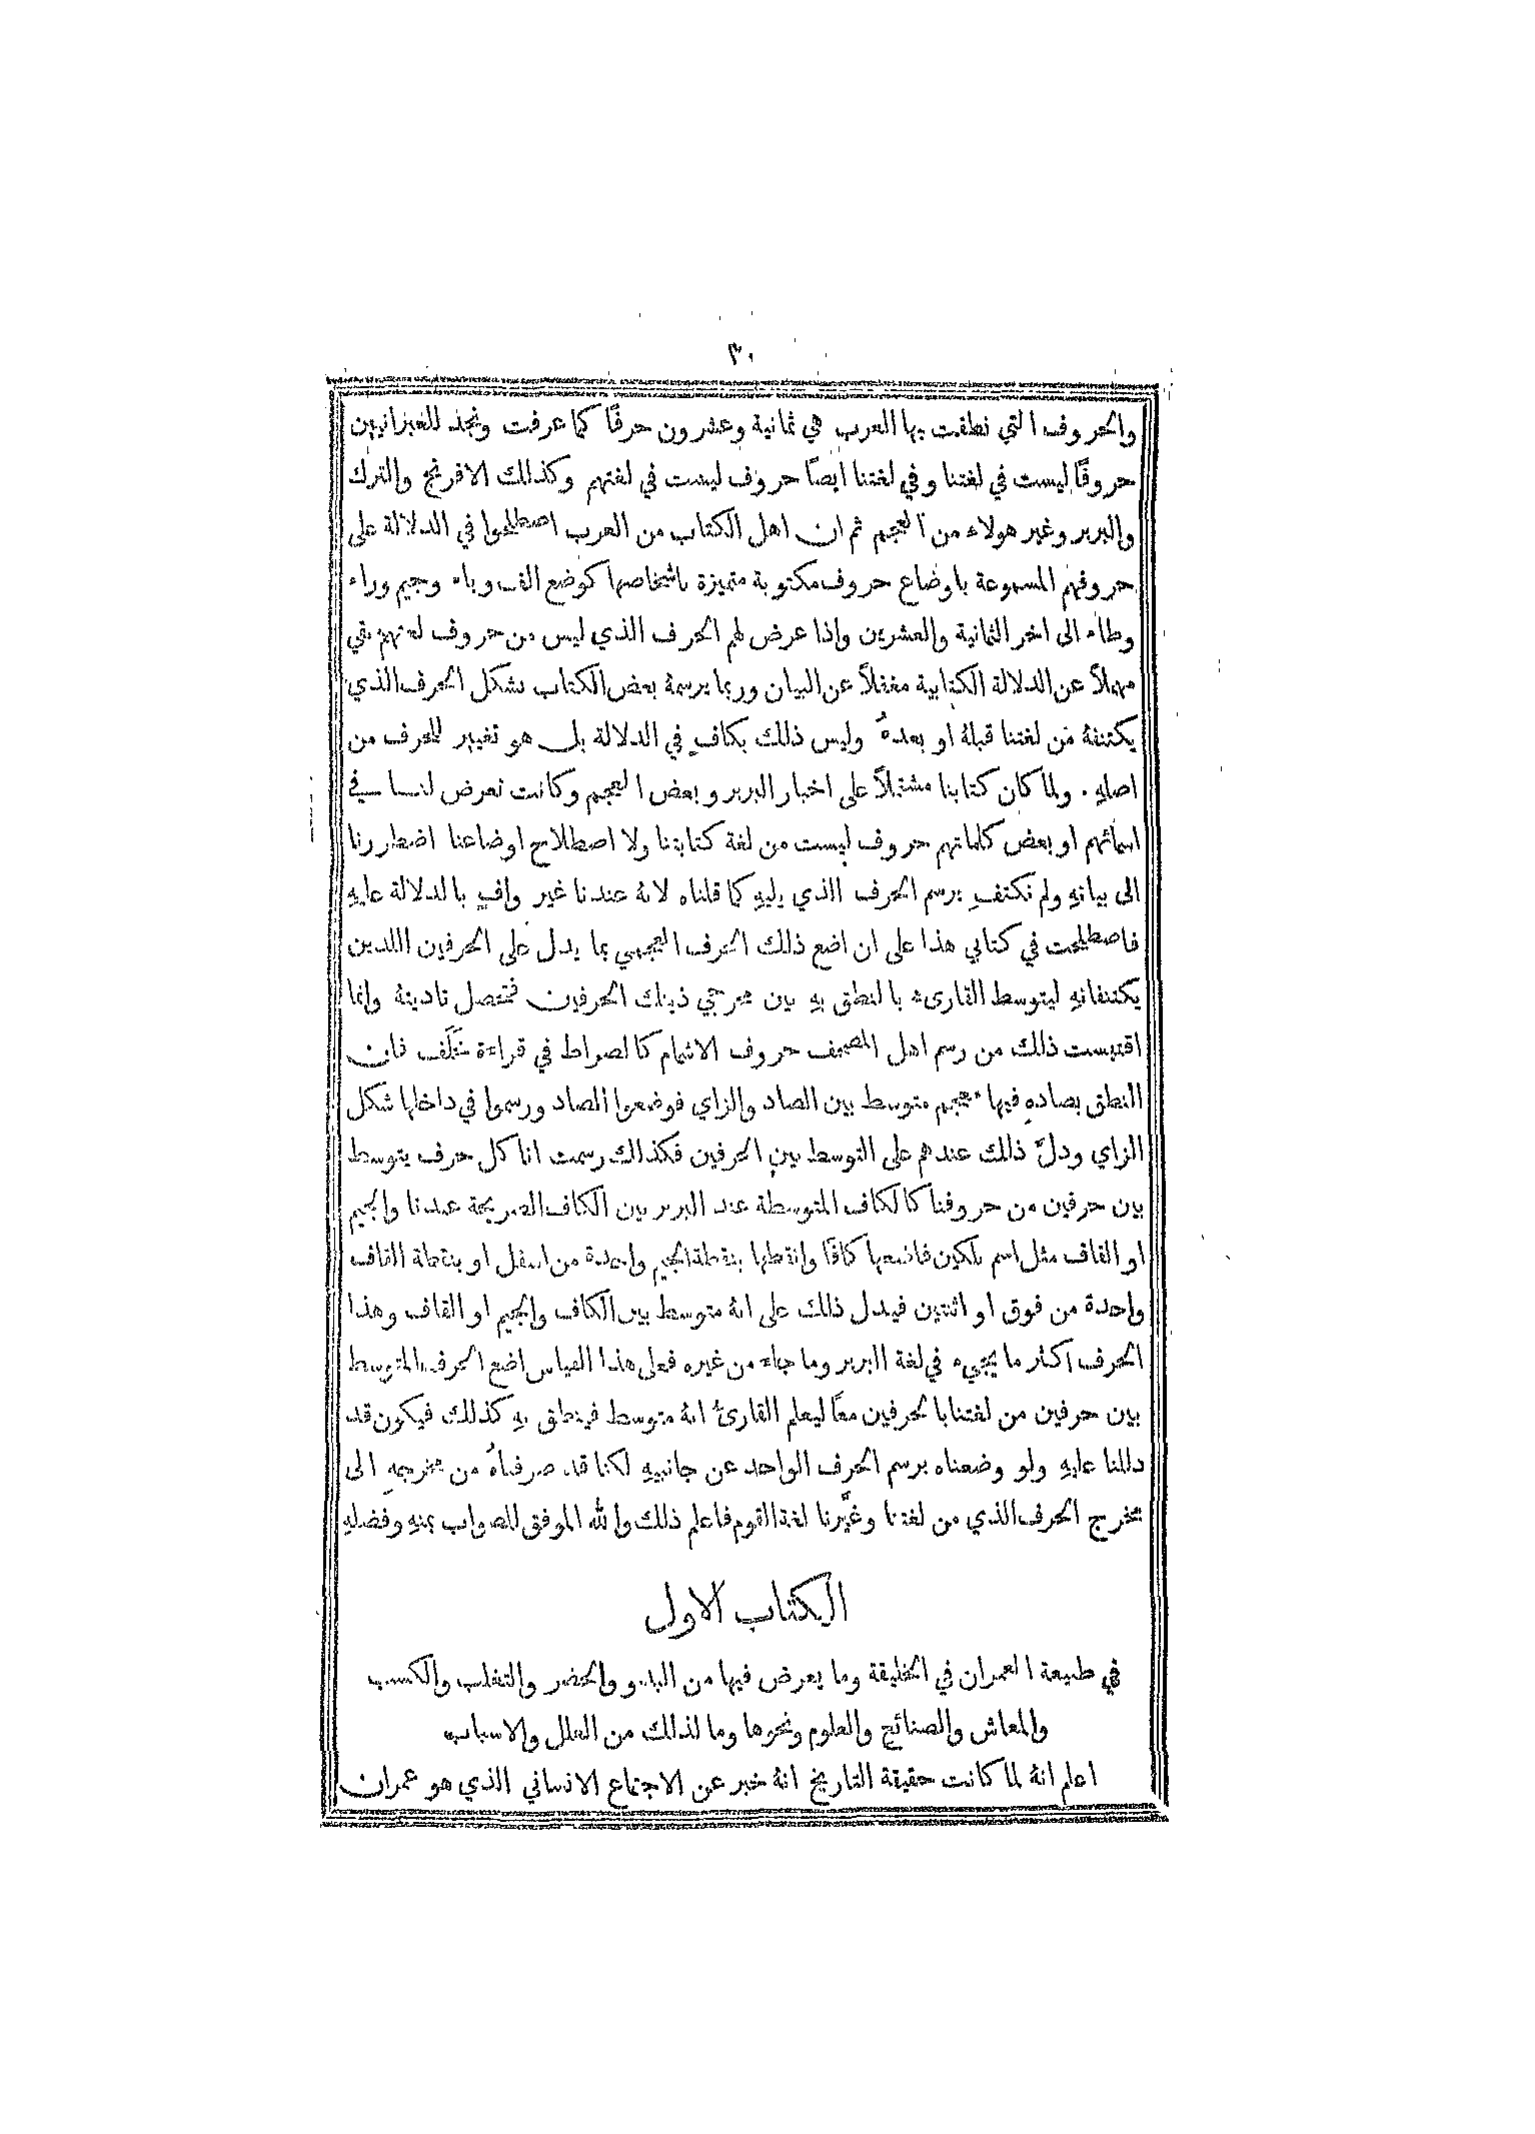 ٣٠
والحروف التي نطقت بها العرب هي ثمانية وعشرون حرفًا كما عرفت ونجد للعبرانيين
حروفًا ليست في لغتنا وفي لغتنا ايضًا حروف ليست في لغتهم وكذلك الافرنج والترك
والبربر وغير هولاء من العجم ثم ان اهل الكتاب من العرب اصطلحوا في الدلالة على
حروفهم المسموعة باوضاع حروف مكتوبة متميزة باشخاصها كوضع الف وباء وجيم وراء
وطاء الى اخر الثمانية والعشرين واذا عرض لهم الحرف الذي ليس من حروف لغتهم بقي
مهملاً عن الدلالة الكتابية مغفلاً عن البيان وربما يرسمهُ بعض الكتاب بشكل الحرف الذي
يكتنفهُ من لغتنا قبلهُ او بعدهُ وليس ذلك بكافٍ في الدلالة بل هو تغيير للحرف من
اصلهِ . ولما كان كتابنا مشتملاً على اخبار البربر وبعض العجم وكانت تعرض لنا في
اسمائهم او بعض كلماتهم حروف ليست من لغة كتابتنا ولا اصطلاح اوضاعنا اضطررنا
الى بيانهِ ولم نكتفِ برسم الحرف الذي يليهِ كما قلناه لانهُ عندنا غير وافٍ بالدلالة عليهِ
فاصطلحت في كتابي هذا على ان اضع ذلك الحرف العجمي بما يدل على الحرفين اللذين
يكتنفانهِ ليتوسط القارىء بالنطق بهِ بين مخرجي ذينك الحرفين فتحصل تاديتهُ وانما
اقتبست ذلك من رسم اهل المصحف حروف الاشمام كالصراط في قراءة خَلَف فان
النطق بصادهِ فيها معجم متوسط بين الصاد والزاي فوضعوا الصاد ورسموا في داخلها شكل
الزاي ودلَّ ذلك عندهم على التوسط بين الحرفين فكذلك رسمت انا كل حرف يتوسط
بين حرفين من حروفنا كالكاف المتوسطة عند البربر بين الكاف الصريحة عندنا والجيم
او القاف مثل اسم بلكين فاضعها كافًا وانقطها بنقطة الجيم واحدة من اسفل او بنقطة القاف
واحدة من فوق او اثنتين فيدل ذلك على انهُ متوسط بين الكاف والجيم او القاف وهذا
الحرف اكثر ما يجيء في لغة البربر وما جاء من غيره فعلى هذا القياس اضع الحرف المتوسط
بين حرفين من لغتنا بالحرفين معًا ليعلم القارئُ انهُ متوسط فينطق بهِ كذلك فيكون قد
دللنا عليهِ ولو وضعناه برسم الحرف الواحد عن جانبيهِ لكنا قد صرفناهُ من مخرجهِ الى
مخرج الحرف الذي من لغتنا وغيَّرنا لغة القوم فاعلم ذلك والله الموفق للصواب بمنهِ وفضلهِ
الكتاب الاول
في طبيعة العمران في الخليقة وما يعرض فيها من البدو والحضر والتغلب والكسب
والمعاش والصنائع والعلوم ونحوها وما لذلك من العلل والاسباب
اعلم انهُ لما كانت حقيقة التاريخ انهُ خبر عن الاجتماع الانساني الذي هو عمران